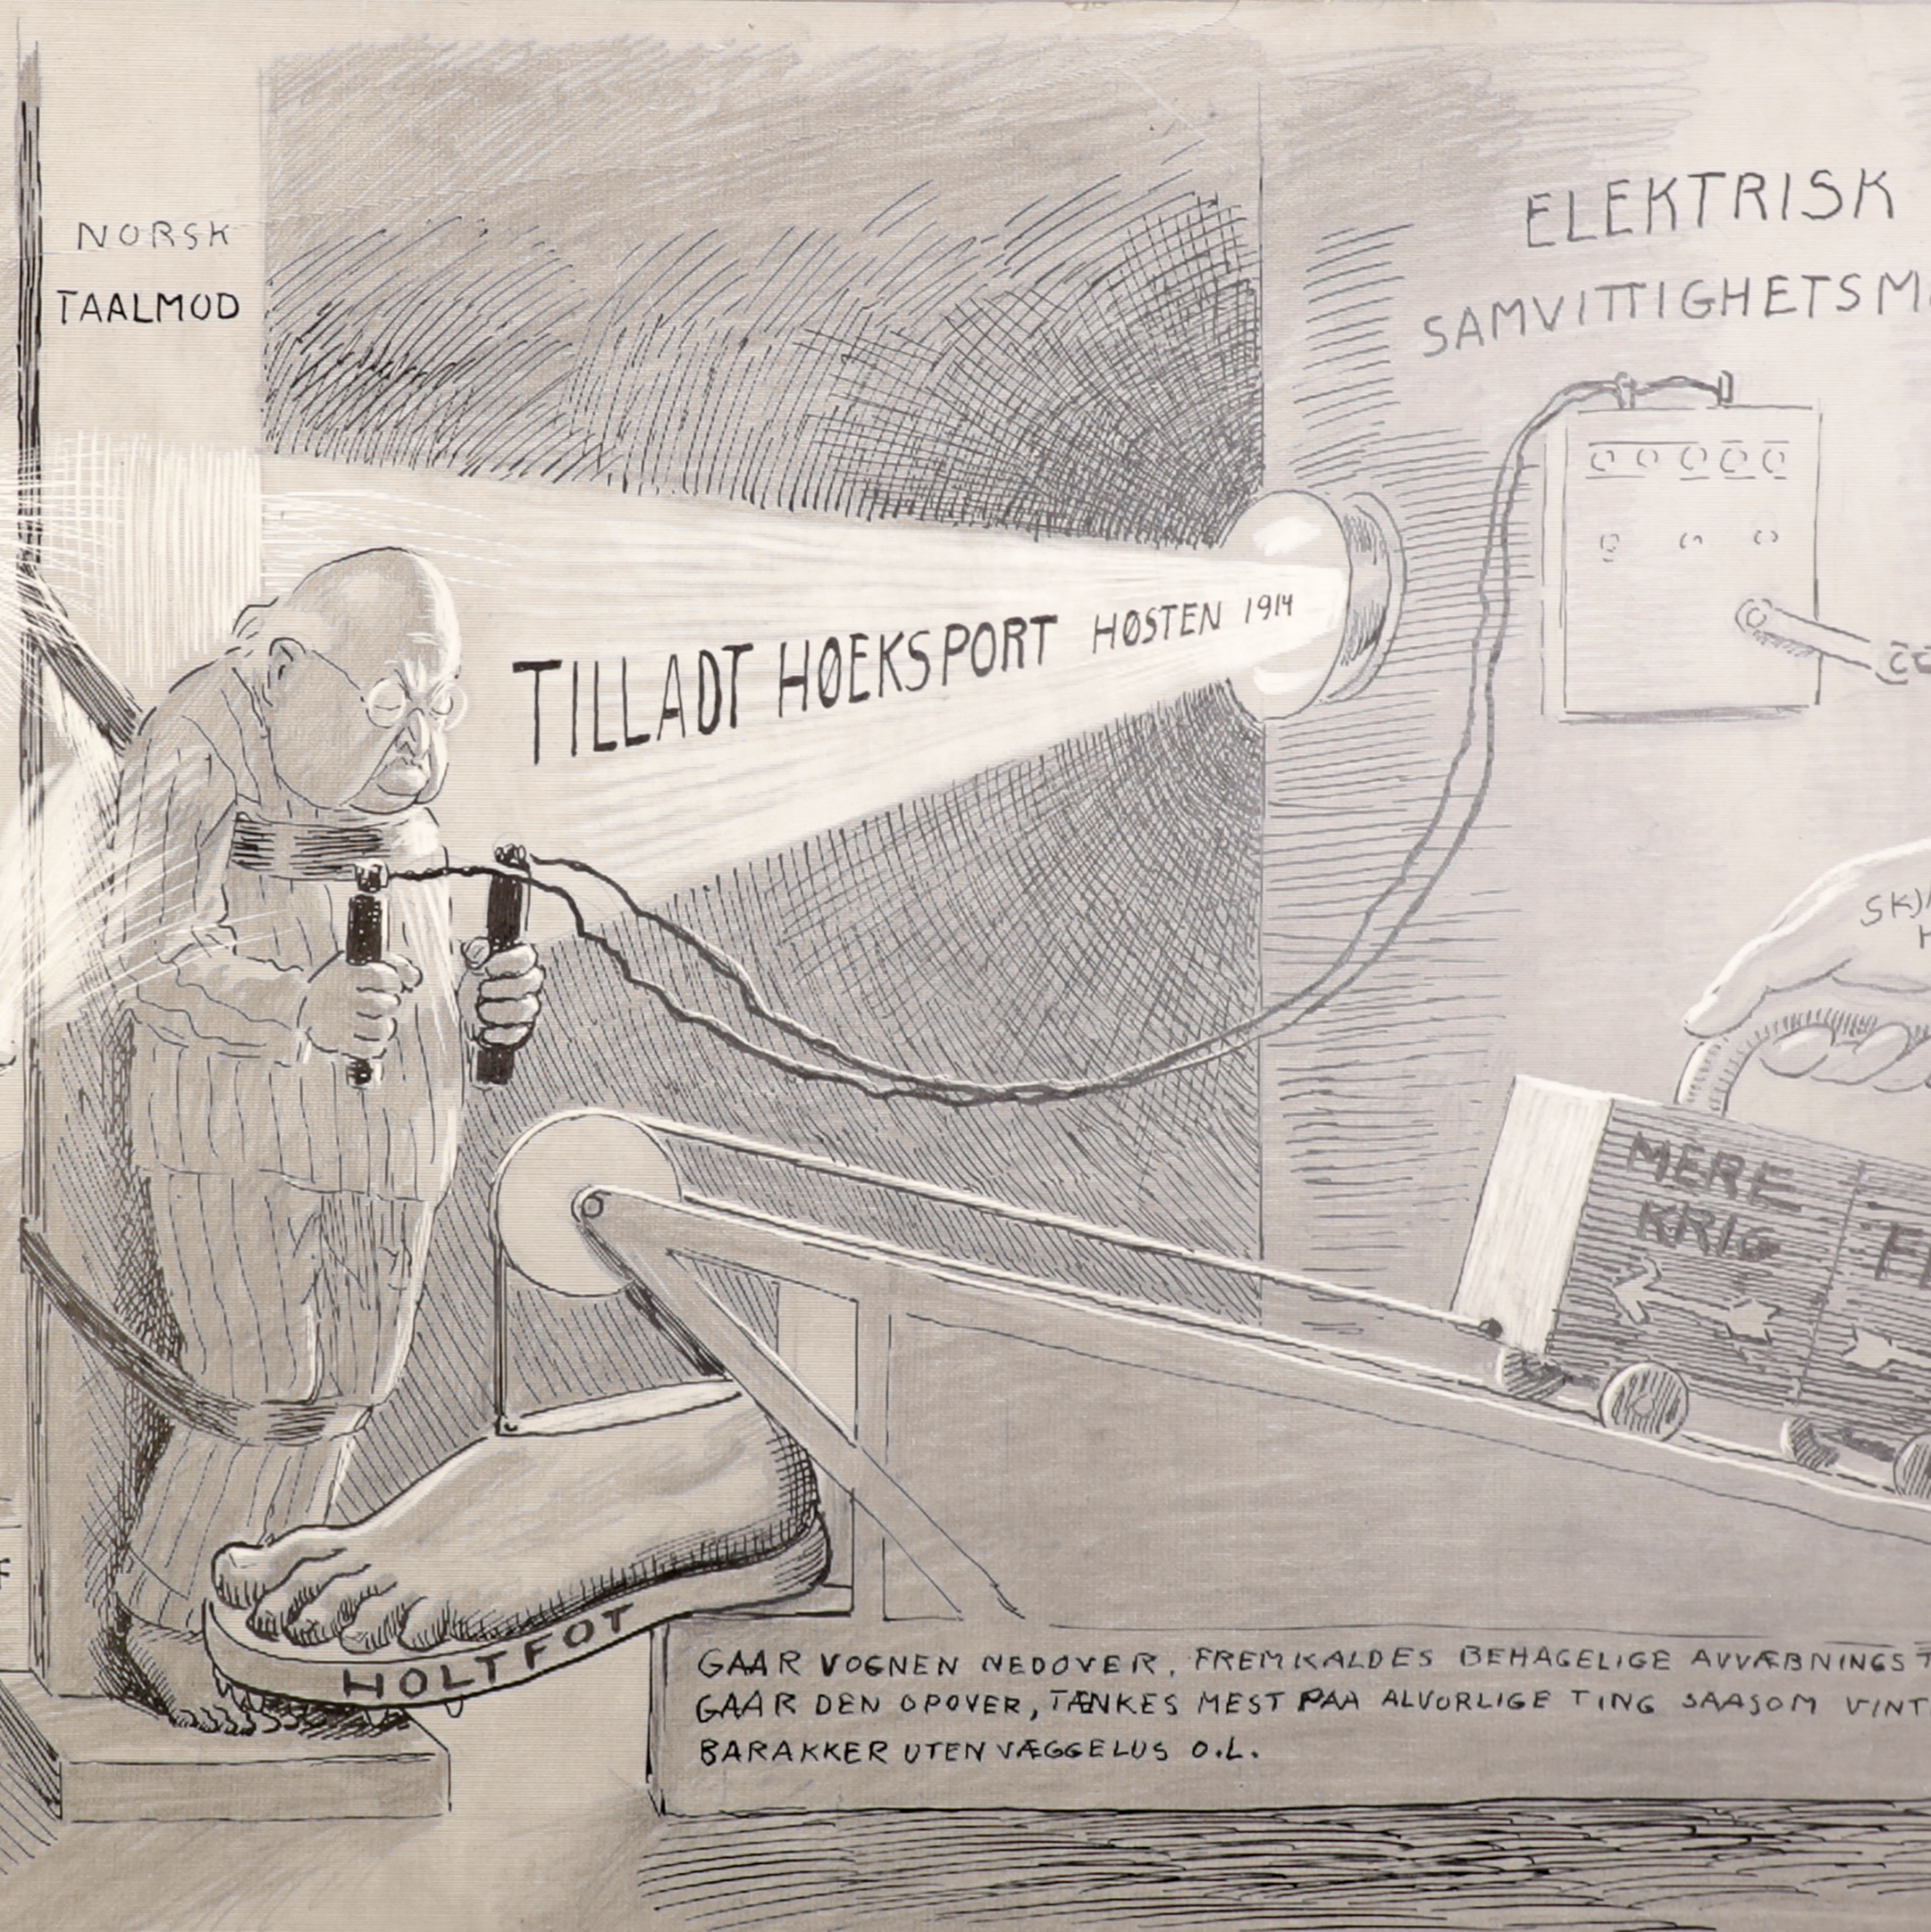 NORSK
TAALMOD
ELEKTRISK
SAMVITTIGHETSM
TILLADT HØEKSPORT HØSTEN 1914
MERE
KRIG
HOLTFOT
GAAR VOGNEN NEDOVER, FREMKALDES BEHAGELIGE AVVÆBNINGST
GAAR DEN OPOVER, TÆNKES MEST PAA ALVORLIGE TING SAASOM VINT
BARAKKER UTEN VÆGGELUS O.L.